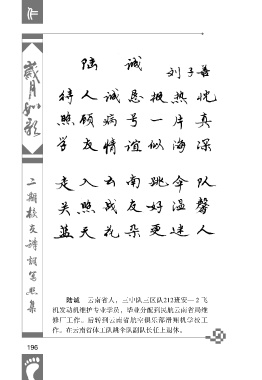 作
岁月如歌
二期校友诗词写照集
陆 诚
刘子善
待人诚恳报热忱
照顾病号一片真
学友情谊似海深
走入云南跳伞队
关照战友好温馨
蓝天花朵更迷人
陆诚 云南省人，三中队三区队212班安—2飞
机发动机维护专业学员，毕业分配到民航云南省局维
修厂工作。后转到云南省航空俱乐部滑翔机学校工
作。在云南省体工队跳伞队副队长任上退休。
196